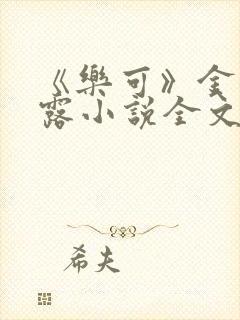 《樂可》金
露小說全文
希夫